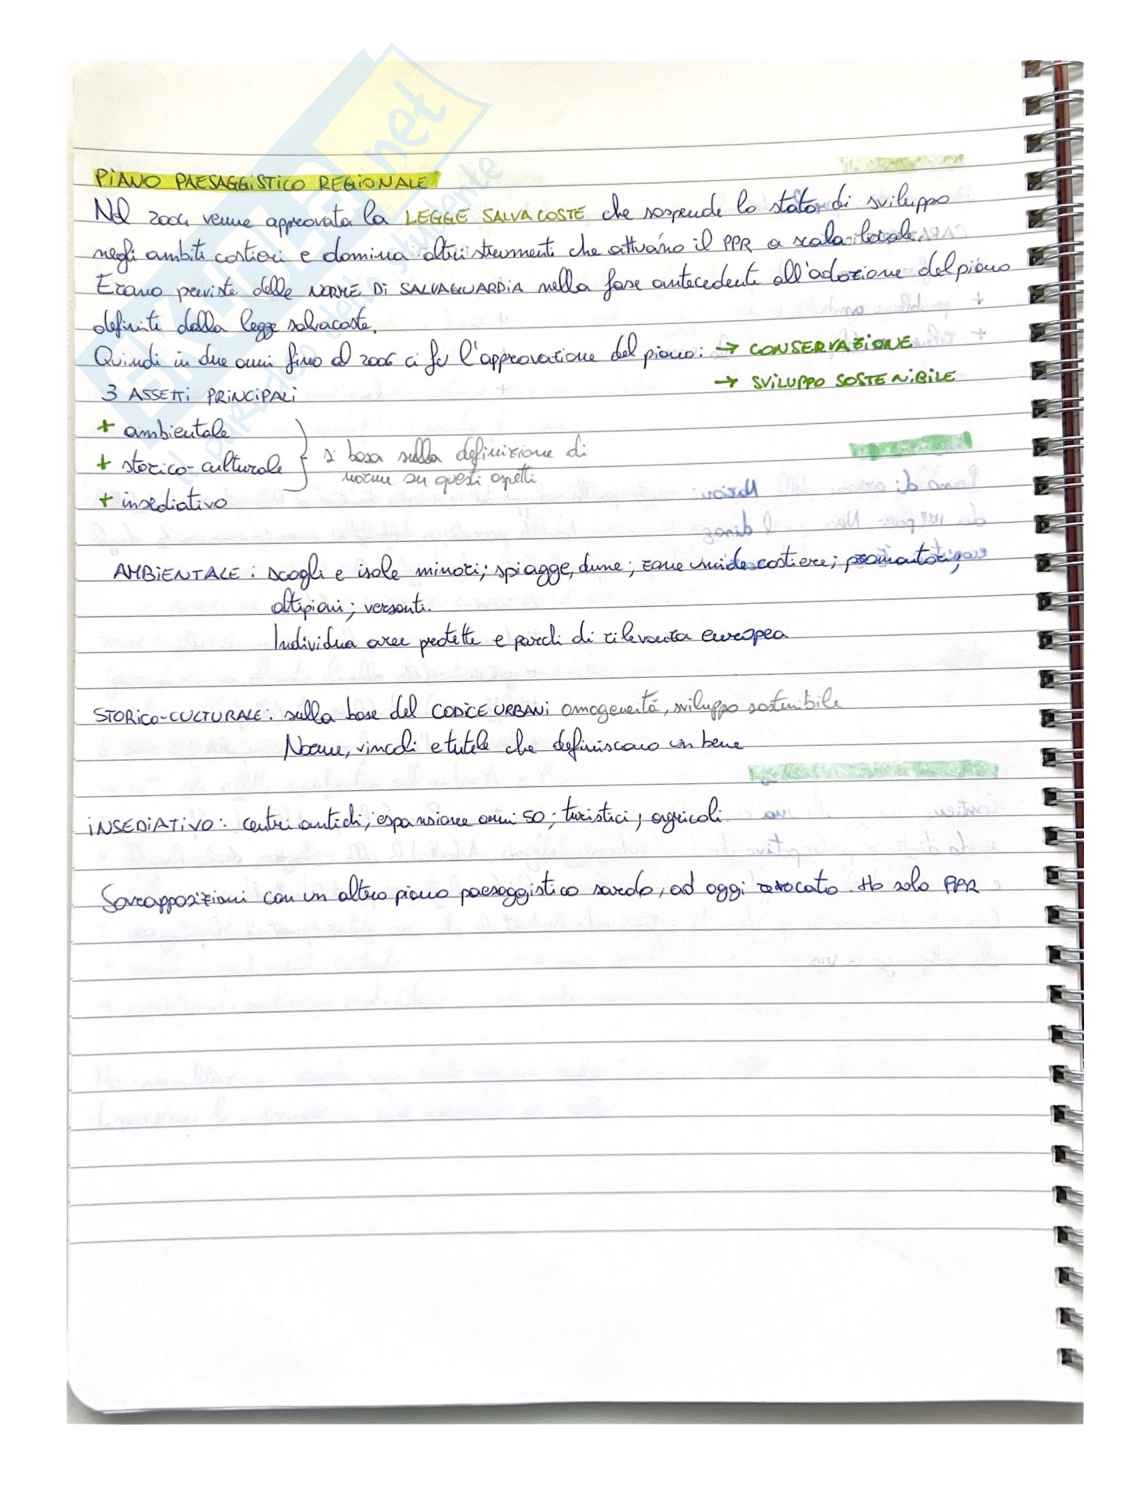 PIANO PAESAGGISTICO REGIONALE
Nel 2004 venne approvata la LEGGE SALVA COSTE che sospende lo stato di sviluppo
negli ambiti costieri e domina altri strumenti che attuano il PPR a scala locale.
Erano previste delle NORME DI SALVAGUARDIA nella fase antecedente all'adozione del piano
definite dalla legge salvacoste.
Quindi in due anni fino al 2006 ci fu l'approvazione del piano: → CONSERVAZIONE
→ SVILUPPO SOSTENIBILE
3 ASSETTI PRINCIPALI
+ ambientale
+ storico-culturale } si basa sulla definizione di
norme su questi aspetti
+ insediativo
AMBIENTALE: scogli e isole minori; spiagge, dune; zone umide costiere; promontori;
altipiani; versanti.
Individua aree protette e parchi di rilevanza europea
STORICO-CULTURALE: sulla base del CODICE URBANI omogeneità, sviluppo sostenibile
Norme, vincoli e tutele che definiscono un bene
INSEDIATIVO: centri antichi, espansione anni 50; turistici, agricoli
Sovrapposizioni con un altro piano paesaggistico sardo, ad oggi revocato. Ho solo PPR